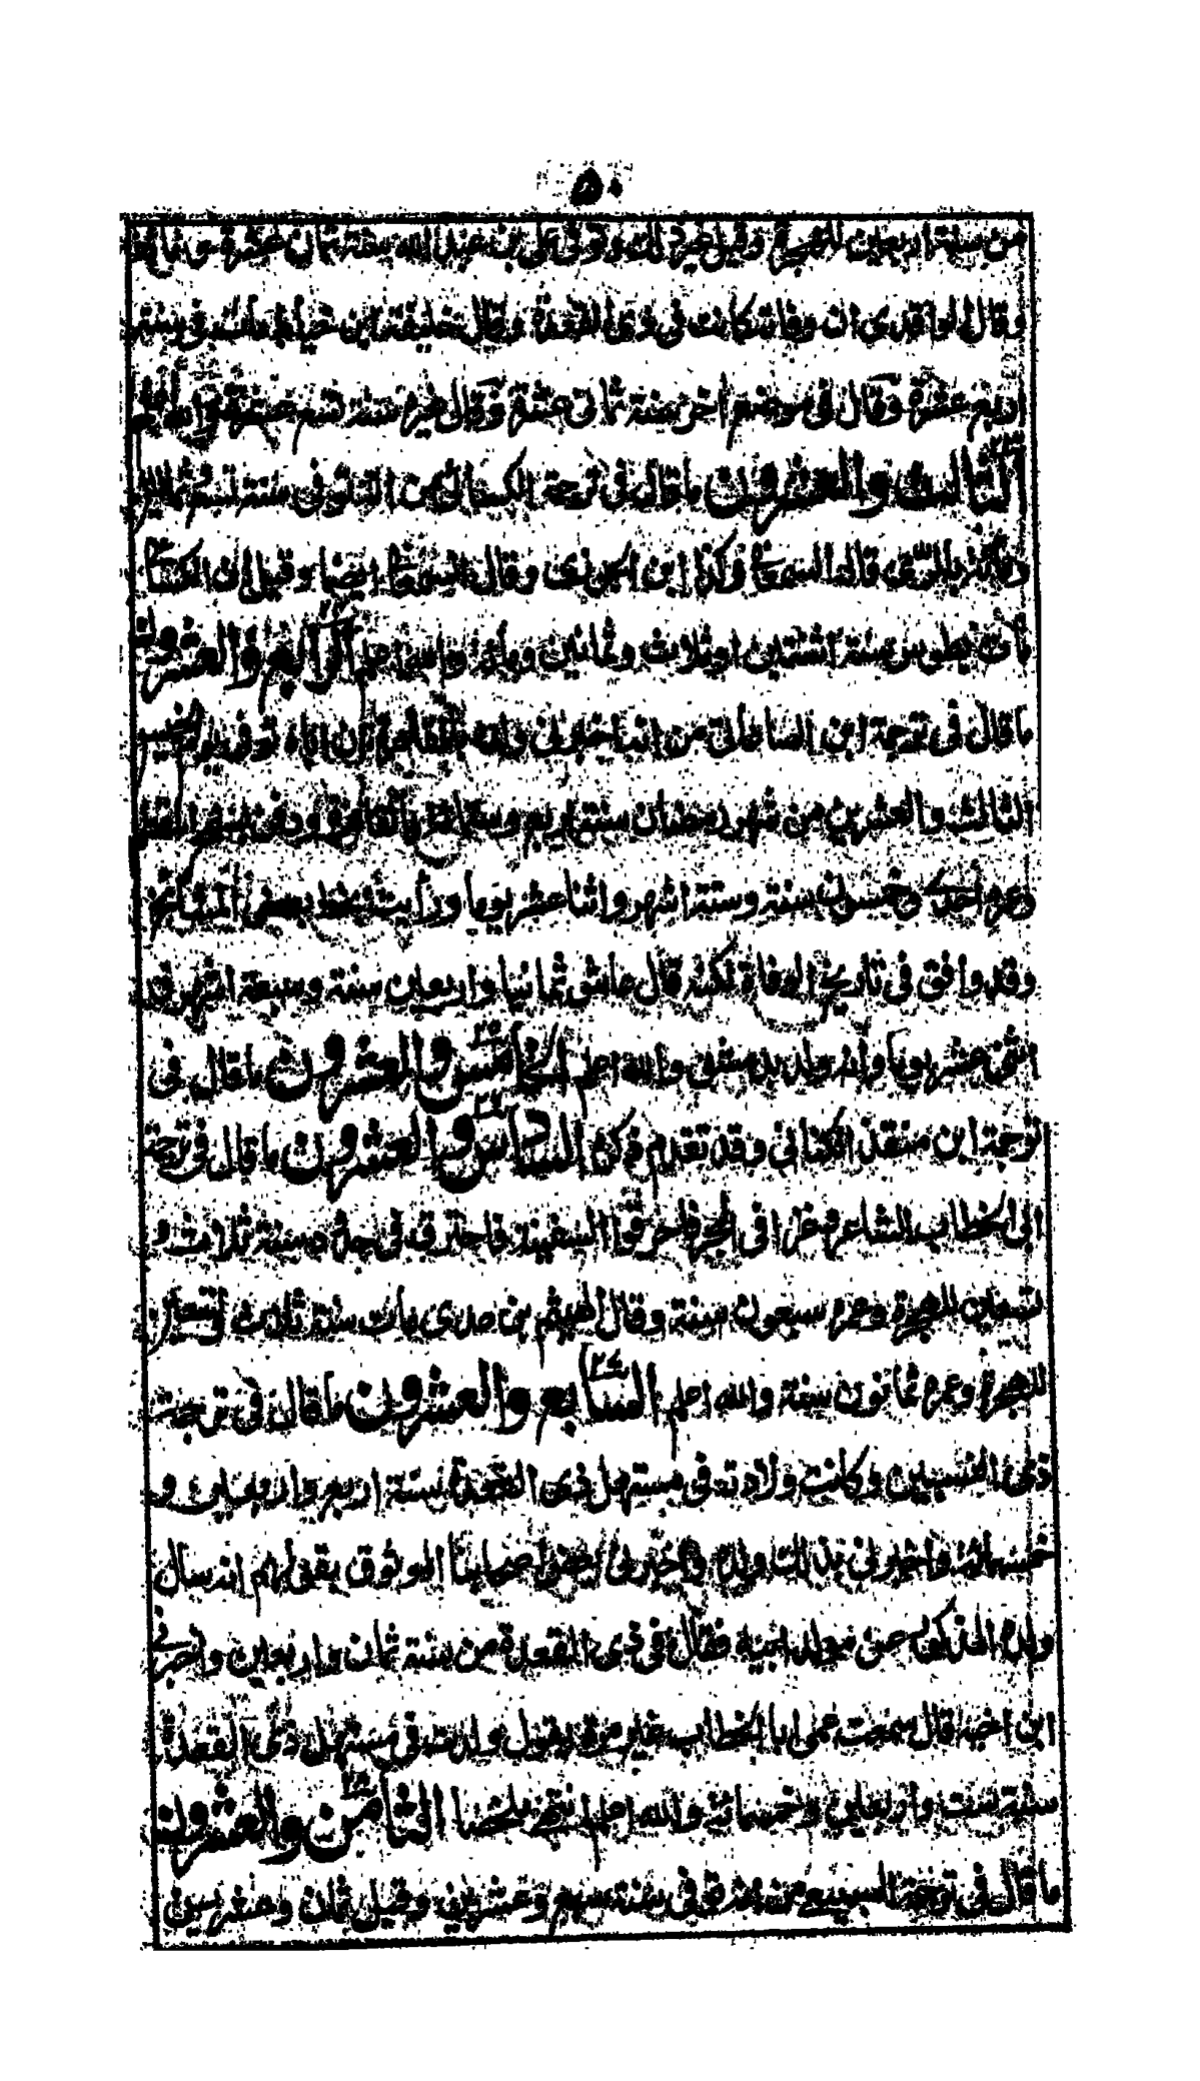 ٥٠
من سنة اربعين للهجرة وقيل غير ذلك وتوفى على بن عبد الله سنة ثمان عشرة
وقال الواقدى ان وفاته كانت فى ذى القعدة وقال خليفة ابن خياط مات فى سنة
اربع عشرة وقال فى موضع آخر سنة ثمانى عشرة وقال غيره سنة تسع عشرة والله اعلم
الثالث والعشرون ما قال فى ترجمة الكسائى من انه توفى سنة تسع
بالرى قاله السمعانى وكذا ابن الجوزى وقال السمعانى ايضا وقيل ان الكسائى
مات بطوس سنة اثنتين او ثلاث وثمانين ومائة والله اعلم الرابع والعشرون ٢٤
ما قال فى ترجمة ابن الساعاتى من انه اخبرنى ولده بالقاهرة ان اباه توفى يوم الخميس
الثالث والعشرين من شهر رمضان سنة اربع وستمائة بالقاهرة ودفن بسفح المقطم
وعمره احدى وخمسون سنة وستة اشهر واثنا عشر يوما ورأيت بخط بعض المشايخ
وقد وافق فى تاريخ الوفاة لكنه قال عاش ثمانيا واربعين سنة وسبعة اشهر
اثنى عشر يوما وانه ولد بدمشق والله اعلم الخامس والعشرون ٢٥ ما قال فى
ترجمة ابن منقذ الكنانى وقد تقدم ذكره السادس والعشرون ٢٦ ما قال فى ترجمة
ابى الخطاب الشاعر غزا فى البحر فاحرقوا السفينة فاحترق فى حدود سنة ثلاث و
تسعين للهجرة وعمره سبعون سنة وقال الهيثم بن عدى مات سنة ثلاث وتسعين
للهجرة وعمره ثمانون سنة والله اعلم السابع والعشرون ٢٧ ما قال فى ترجمة
ذى النسبين وكانت ولادته فى مستهل ذى القعدة سنة اربع واربعين و
خمسمائة واخبرنى بذلك ولده واخبرنى بعض اصحابنا الموثوق بقولهم انه سال
ولده المذكور عن مولد ابيه فقال فى ذى القعدة من سنة ثمان واربعين واخبرنى
ابن اخيه قال سمعت عمى ابا الخطاب غير مرة يقول ولدت فى مستهل ذى القعدة
سنة ست واربعين وخمسمائة والله اعلم انتهى ملخصا الثامن والعشرون ٢٨
ما قال فى ترجمة السبيعى من انه توفى سنة سبع وعشرين وقيل ثمان وعشرين